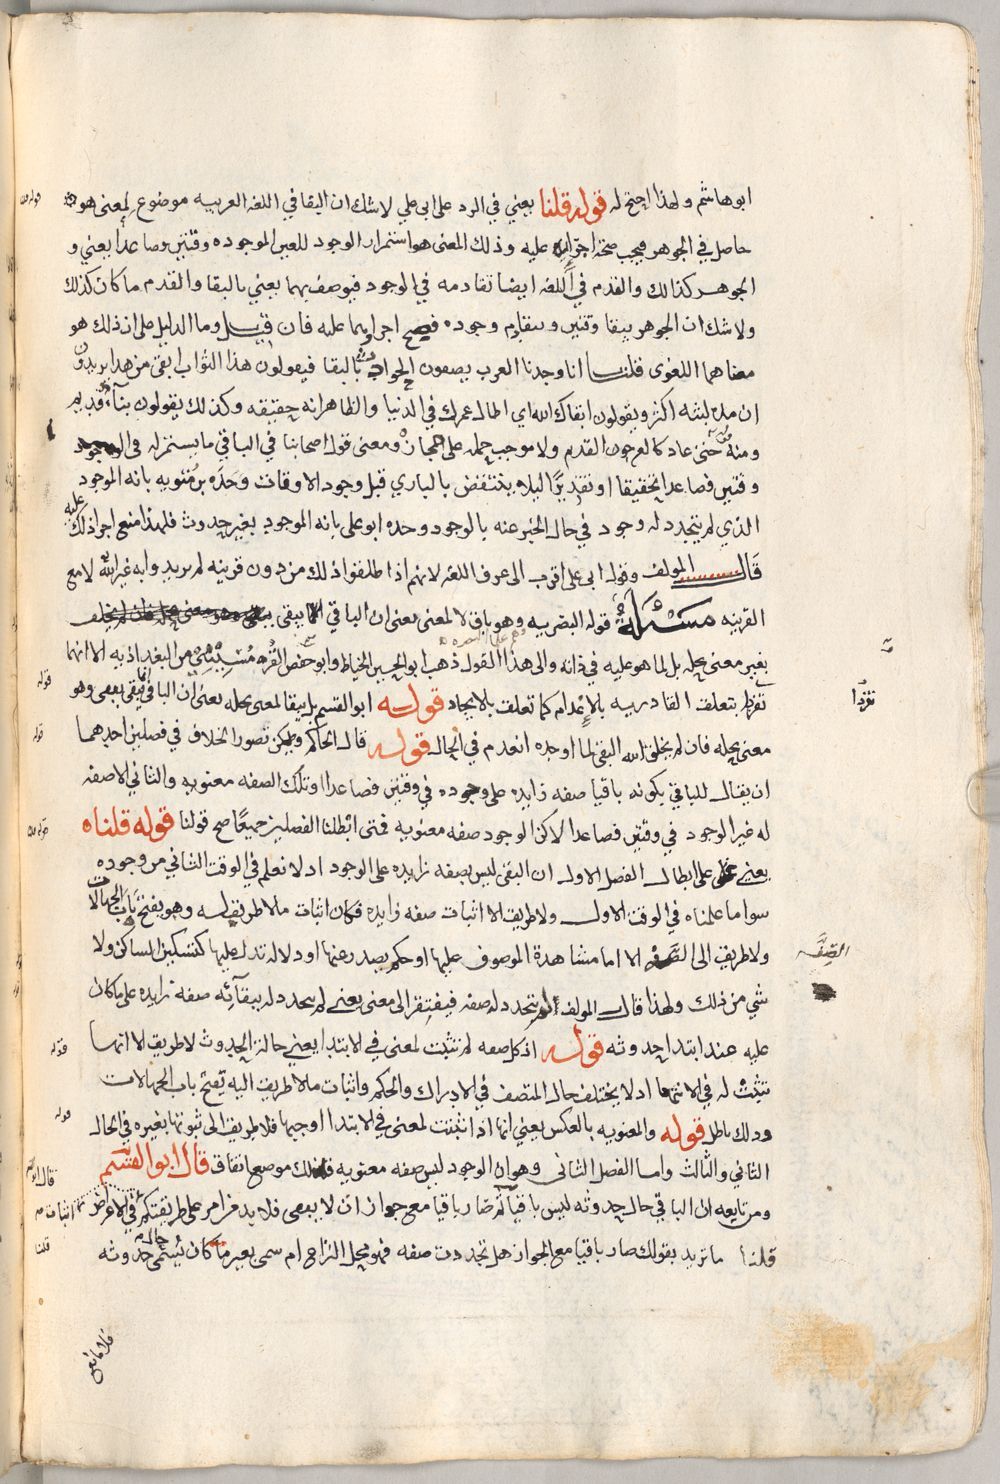 ابوهاشم ولهذا احتج له قوله قلنا يعني في الرد على ابي علي لا شك ان البقا في اللغه العربيه موضوع لمعنى هو
حاصل في الجوهر فيجب صحة اجرايه عليه وذلك المعنى هو استمرار الوجود للعين الموجوده وقتين وصاعدا يعني و
الجوهر كذالك والقدم في اللغه ايضا تقادمه في الوجود فيوصف بهما يعني بالبقا والقدم ما كان كذلك
ولا شك ان الجوهر يبقا وقتين ويتقادم وجوده فيصح اجراوهما عليه فان قيل وما الدليل على ان ذلك هو
معناهما اللغوى قلنا انا وجدنا العرب يصفون الحوادث بالبقا فيقولون هذا الثواب ابقى من هذا يريدون
ان مدة لبثه اكثر ويقولون ابقاك الله اي اطال عمرك في الدنيا والظاهر انه حقيقه وكذلك يقولون بناء قديم
ومنه حتى عاد كالعرجون القديم ولا موجب لحمله على المجاز ومعنى قول اصحابنا في الباقي ما يستمر له في الوجود
وقتين فصاعدا تحقيقا او تقديرا ليلا ينتقض بالباري قبل وجود الاوقات وحده بن متويه بانه الموجود
الذي لم يتجدد له وجود في حال الخبر عنه بالوجود وحده ابو على بانه الموجود بغير حدوث فلهذا منع اجرا ذلك عليه
قال المولف وقول ابي على اقرب الى عرف اللغه لانهم اذا اطلقوا ذلك من دون قرينه لم يريدوا به غير الله لا مع
القرينه مسئلة قوله البصريه وهو باق لا لمعنى يعني ان الباقي لا يبقى
بغير معنى يحله بل لما هو عليه في ذاته والى هذا القول ذهب ابو الحسين الخياط وابو حفص القرميسيني من البغداذيه الا انهما
تفردا بتعلق القادريه بالاعدام كما تعلق بالايجاد قوله ابو القسم بل يبقا لمعنى يحله يعني ان الباقي يبقى ببقى وهو
معنى يحله فان لم يخلق الله البقى لما اوجده انعدم في الحال قوله قال الحاكم ويمكن تصور الخلاف في فصلين احدهما
ان يقال للباقي بكونه باقيا صفه زايده على وجوده في وقتين فصاعدا وتلك الصفه معنويه والثاني لا صفه
له غير الوجود في وقتين فصاعدا لاكن الوجود صفه معنويه فمتى ابطلنا الفصلين جميعا صح قولنا قوله قلناه
يعني على ابطال الفصل الاول ان البقى ليس بصفه زايده على الوجود اذ لا نعلم في الوقت الثاني من وجوده
سوا ما علمناه في الوقت الاول ولا طريق الا اثبات صفه زايده فكان اثبات ما لا طريق اليه وهو يفتح باب الجهالات
ولا طريق الى الصفه الا اما مشاهدة الموصوف عليها او حكم يصدر عنها او دلاله تدل عليها كتسكين الساكن ولا
شي من ذلك ولهذا قال المولف لم تتجدد له صفه فيفتقر الى معنى يعني لم يتجدد له ببقائه صفه زايده على ما كان
عليه عند ابتدا حدوثه قوله اذ كل صفه لم تثبت لمعنى في الابتدا يعني حالة الحدوث لا طريق الا انها
تثبت له في الانتها اذ لا يختلف حال المتصف في الادراك والحكم واثبات ما لا طريق اليه يفتح باب الجهالات
وذلك باطل قوله والمعنويه بالعكس يعني انها اذا ثبتت لمعنى في الابتدا اوجبها فلا طريق الى ثبوتها بغيره في الحال
الثاني والثالث واما الفصل الثاني وهو ان الوجود ليس صفه معنويه فذلك موضع اتفاق قال ابو القسم
ومن تابعه ان الباقي حال حدوثه ليس باقيا ثم صار باقيا مع جواز ان لا يبقى فلا بد من امر على طريقتكم في الاعراض
قلنا ما تريد بقولك صار باقيا مع الجواز هل تجددت صفه فهو محل النزاع ام سمى بغير ما كان يسمى حال حدوثه
تفردا
الصفه
قوله
قوله
قوله
قوله
قلنا
فلا مانع